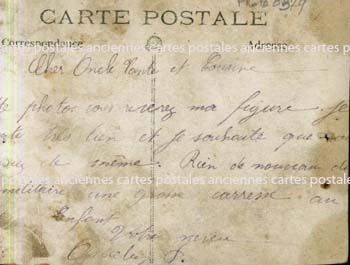 CARTE POSTALE
Correspondance Adresse
cartes postales anciennes cartes postales anciennes cartes postales
Cher Oncle Tante et Cousine
photo vous verrez ma figure. je
très bien et je souhaite que
de même. Rien de nouveau
anciennes cartes postales anciennes cartes postales anciennes
militaire une grosse caresse au
Enfant
Votre neveu